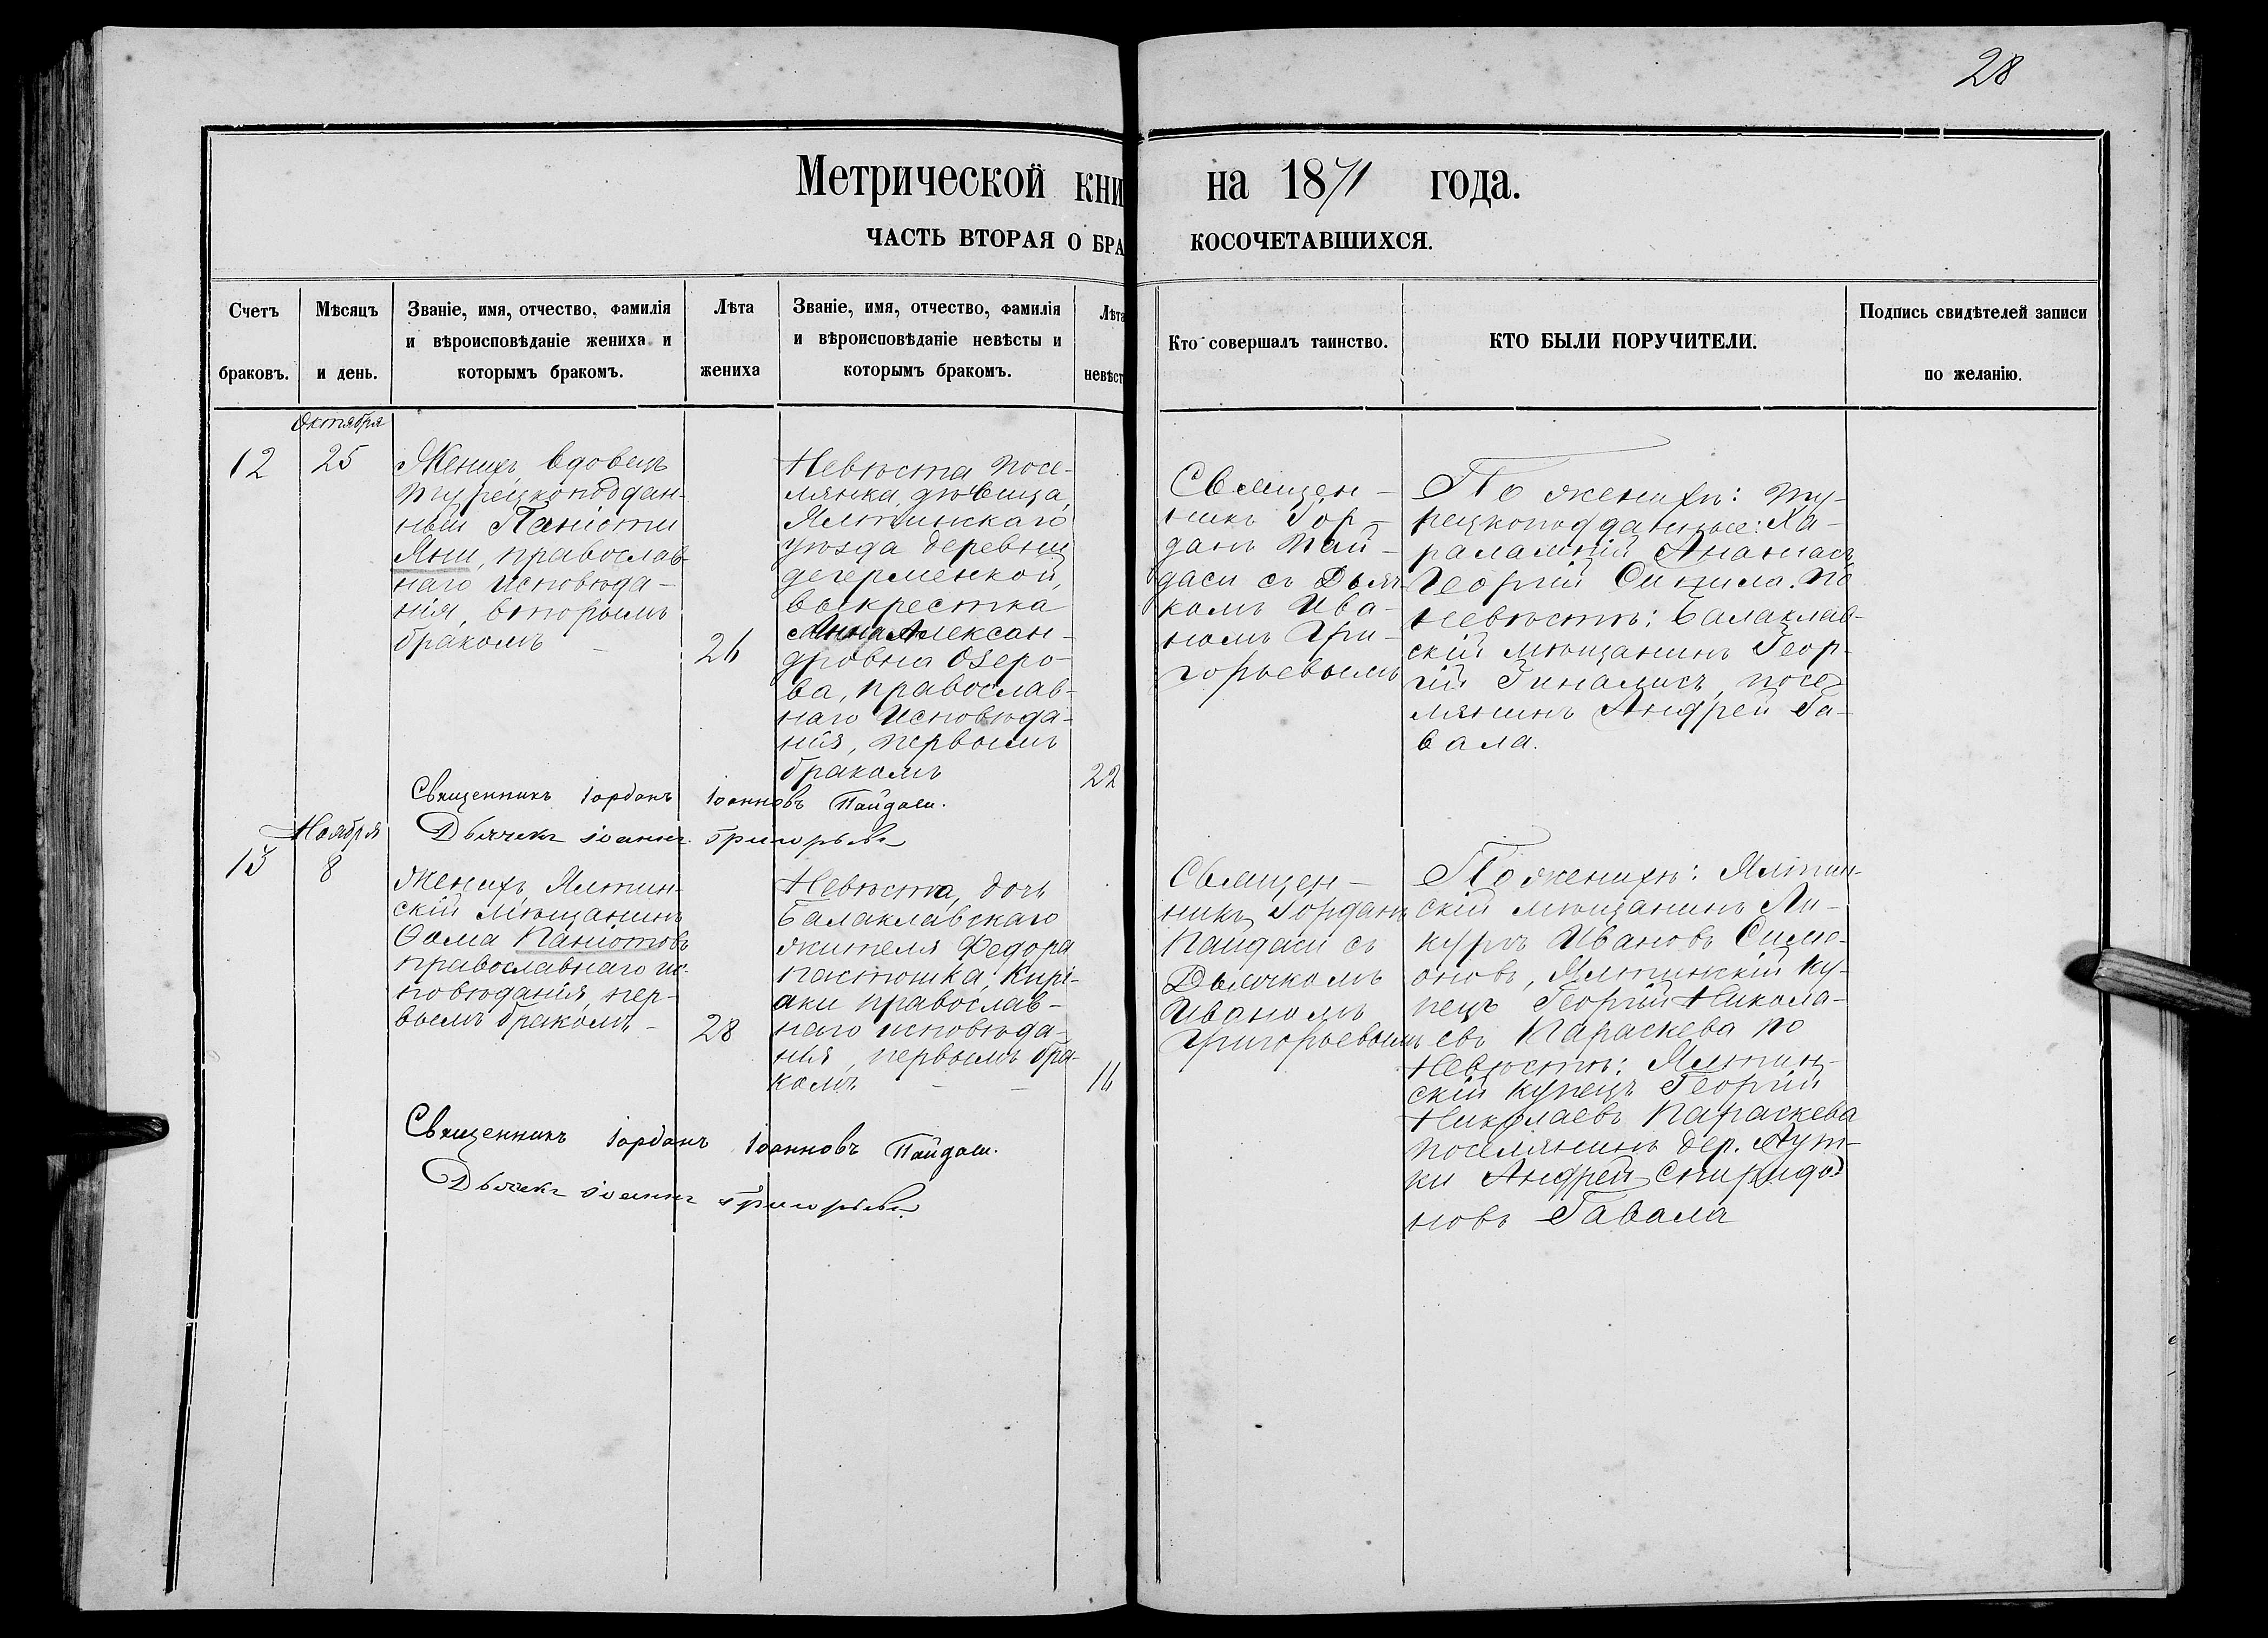 28
Метрической кни на 1871 года.
ЧАСТЬ ВТОРАЯ О БРА КОСОЧЕТАВШИХСЯ.
Счетъ браковъ.
Мѣсяцъ и день.
Званіе, имя, отчество, фамилія
и вѣроисповѣданіе жениха и
которымъ бракомъ.
Лѣта
жениха
Званіе, имя, отчество, фамилія
и вѣроисповѣданіе невѣсты и
которымъ бракомъ.
Лѣта
невѣст
Кто совершалъ таинство.
КТО БЫЛИ ПОРУЧИТЕЛИ.
Подпись свидѣтелей записи
по желанію.
Октября
12
25
Женихъ вдовецъ
турецкоподдан-
ный Паніоти
Яни, православ-
наго исповѣда-
нія, вторымъ
бракомъ
26
Невѣста посе-
лянка дѣвица,
Ялтинскаго
уѣзда деревни
дегерменкой,
выкрестка
Анна Алексан-
дровна Озеро-
ва, православ-
наго исповѣда-
нія, первымъ
бракомъ
22
Священ-
никъ Іор-
данъ Пай-
даси съ Дьяч-
комъ Ива-
номъ Гри-
горьевымъ
По женихѣ: ту-
рецкоподданные: Ха-
ралампій Ананасъ
Георгій Сикила. По
невѣстѣ: Балаклав-
скій мѣщанинъ Геор-
гій Гиналисъ, посе-
лянинъ Андрей Га-
вала.
Священникъ Іорданъ Іоанновъ Пайдаси.
Дьячекъ Іоаннъ Григорьевъ
Ноября
13
8
Женихъ, Ялтин-
скій мѣщанинъ
Ѳома Паніотовъ
православнаго ис-
повѣданія, пер-
вымъ бракомъ
28
Невѣста, дочь
Балаклавскаго
жителя Федора
Кирі-
аки православ-
наго исповѣда-
нія, первымъ бра-
комъ
16
Священ-
никъ Іорданъ
Пайдаси съ
Дьячкомъ
Иваномъ
Григорьевымъ
По женихѣ: Ялтин-
скій мѣщанинъ Ли-
куръ Ивановъ Симе-
оновъ, Ялтинскій ку-
пецъ Георгій Никола-
евъ Параскева по
Невѣстѣ: Ялтин-
скій купецъ Георгій
Николаевъ Параскева
поселянинъ дер. Аут-
ки Андрей Спиридо-
новъ Гавала
Священникъ Іорданъ Іоанновъ Пайдаси.
Дьячекъ Іоаннъ Григорьевъ